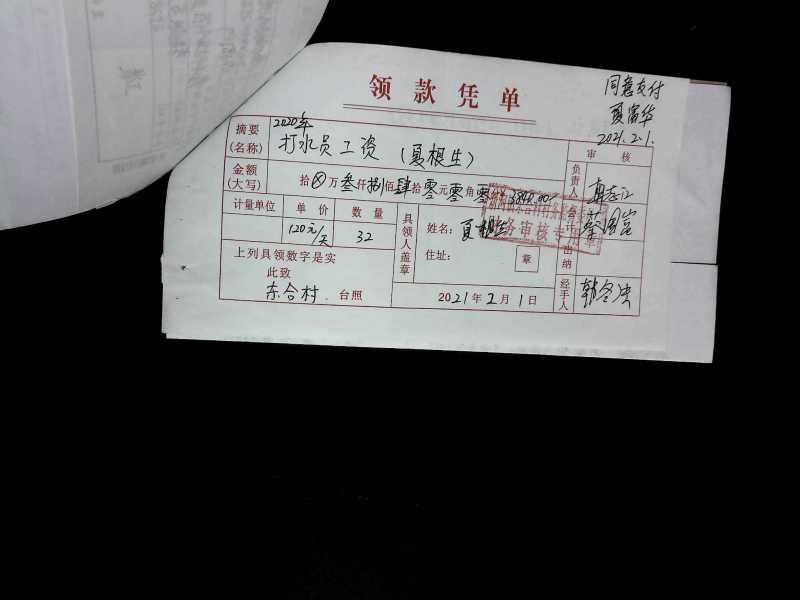 领款凭单
同意支付
夏富华
2021.2.1.
摘要(名称) 2020年打水员工资(夏根生)
审核
金额(大写) 拾⊗万叁仟捌佰肆拾零元零角零 3840.00
负责人
计量单位 单价 数量
120元/天 32
具领人盖章
姓名:夏根生
住址: 章
务审核专用章
会计
出纳
上列具领数字是实
此致
东合村 台照
2021年2月1日
经手人